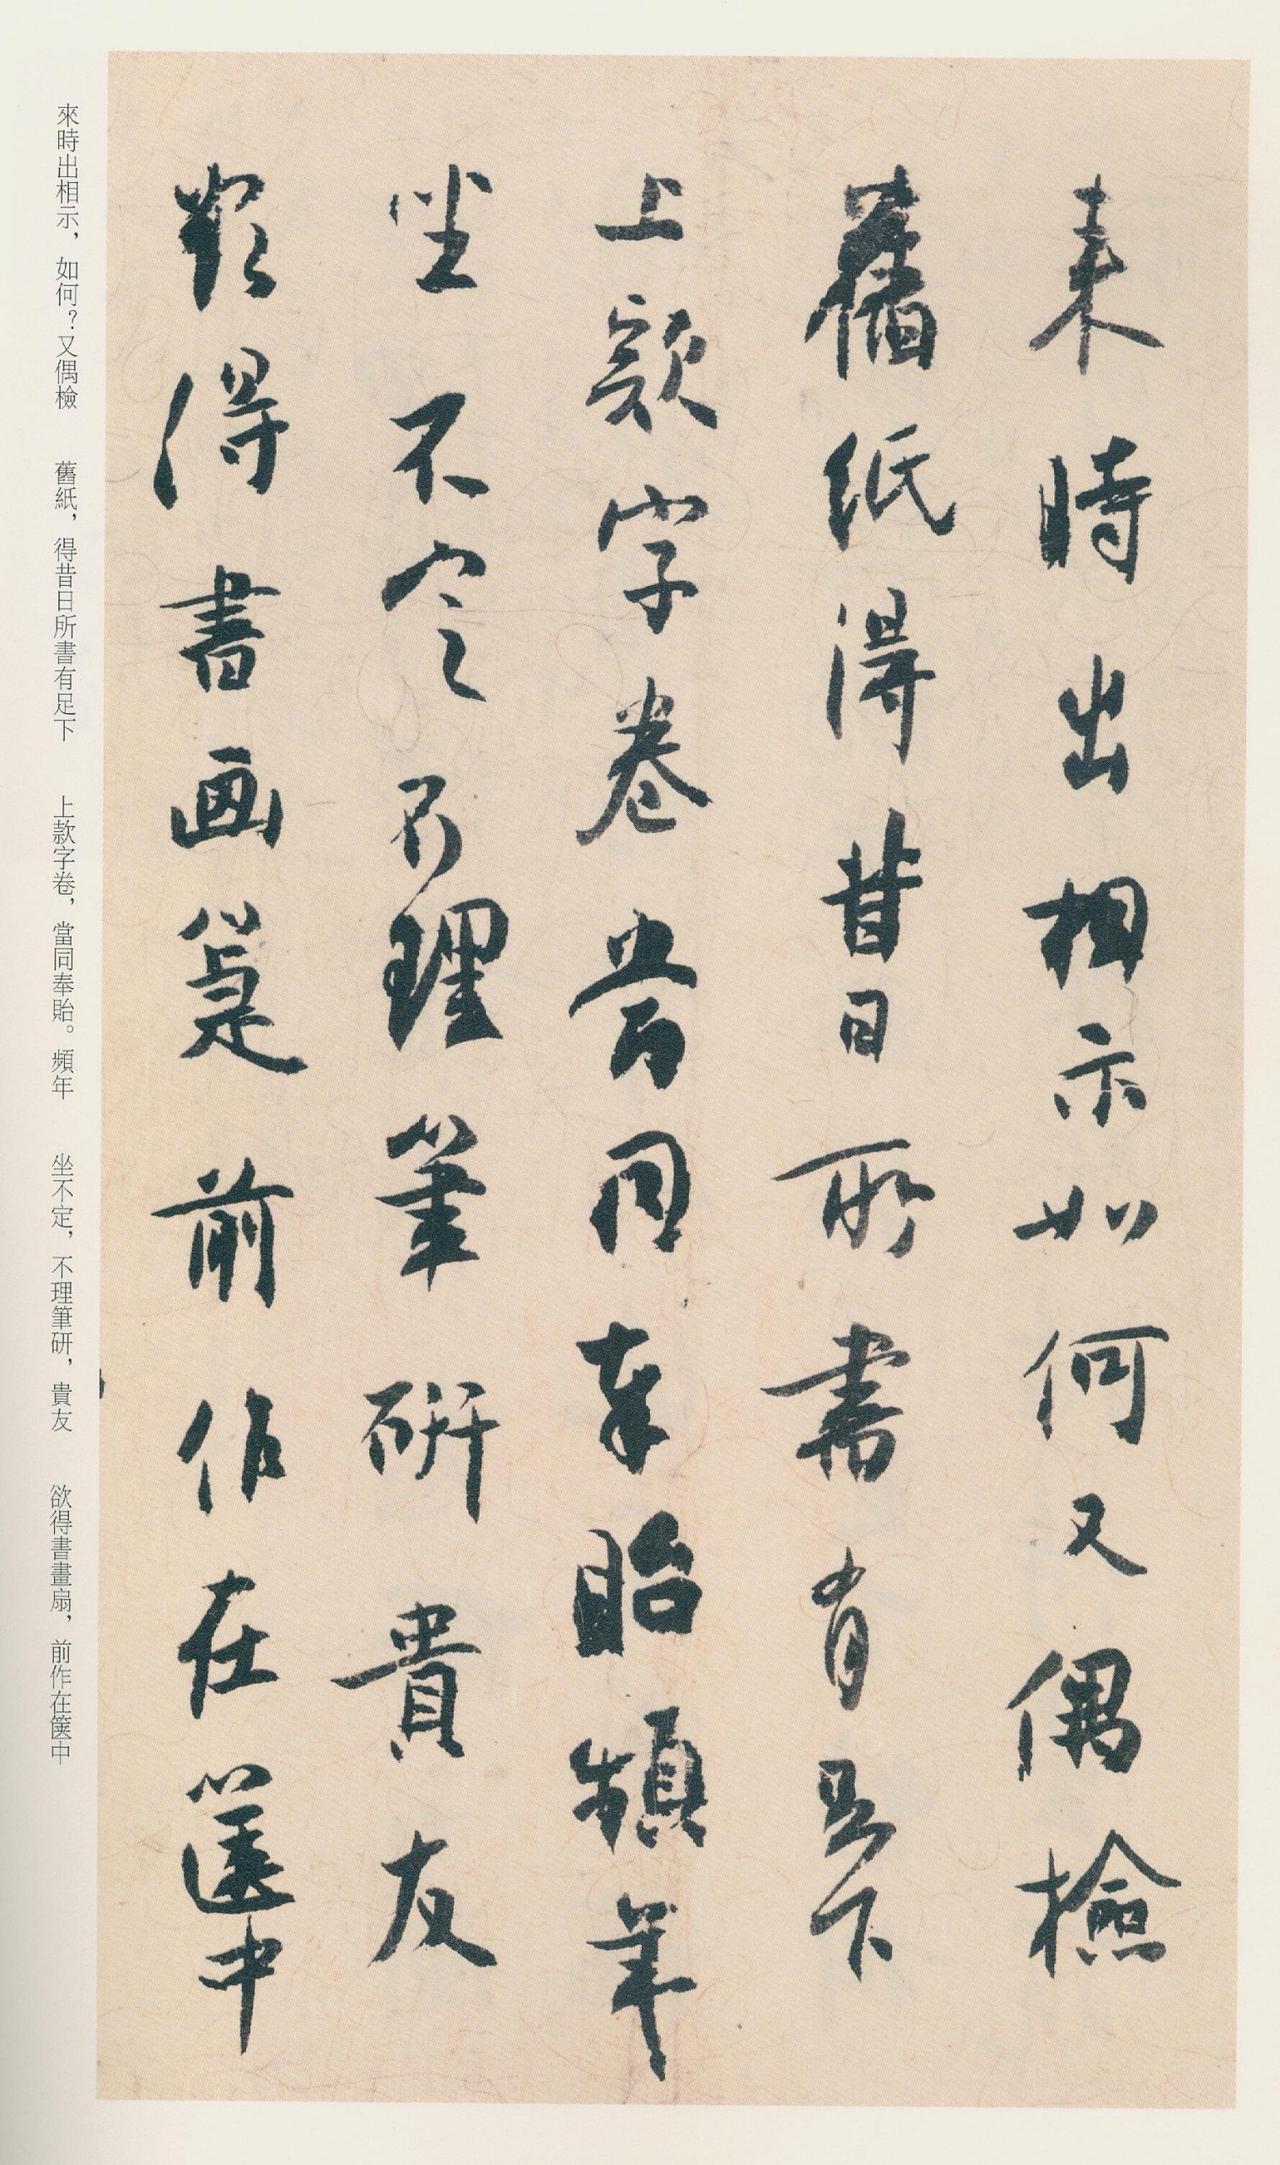 来時出相示如何又偶檢
舊紙得昔日所書有足下
上款字卷當同奉貽頻年
坐不定不理筆研貴友
欲得書画箑前作在篋中
來時出相示，如何？又偶檢　舊紙，得昔日所書有足下　上款字卷，當同奉貽。頻年　坐不定，不理筆研，貴友　欲得書畫扇，前作在篋中